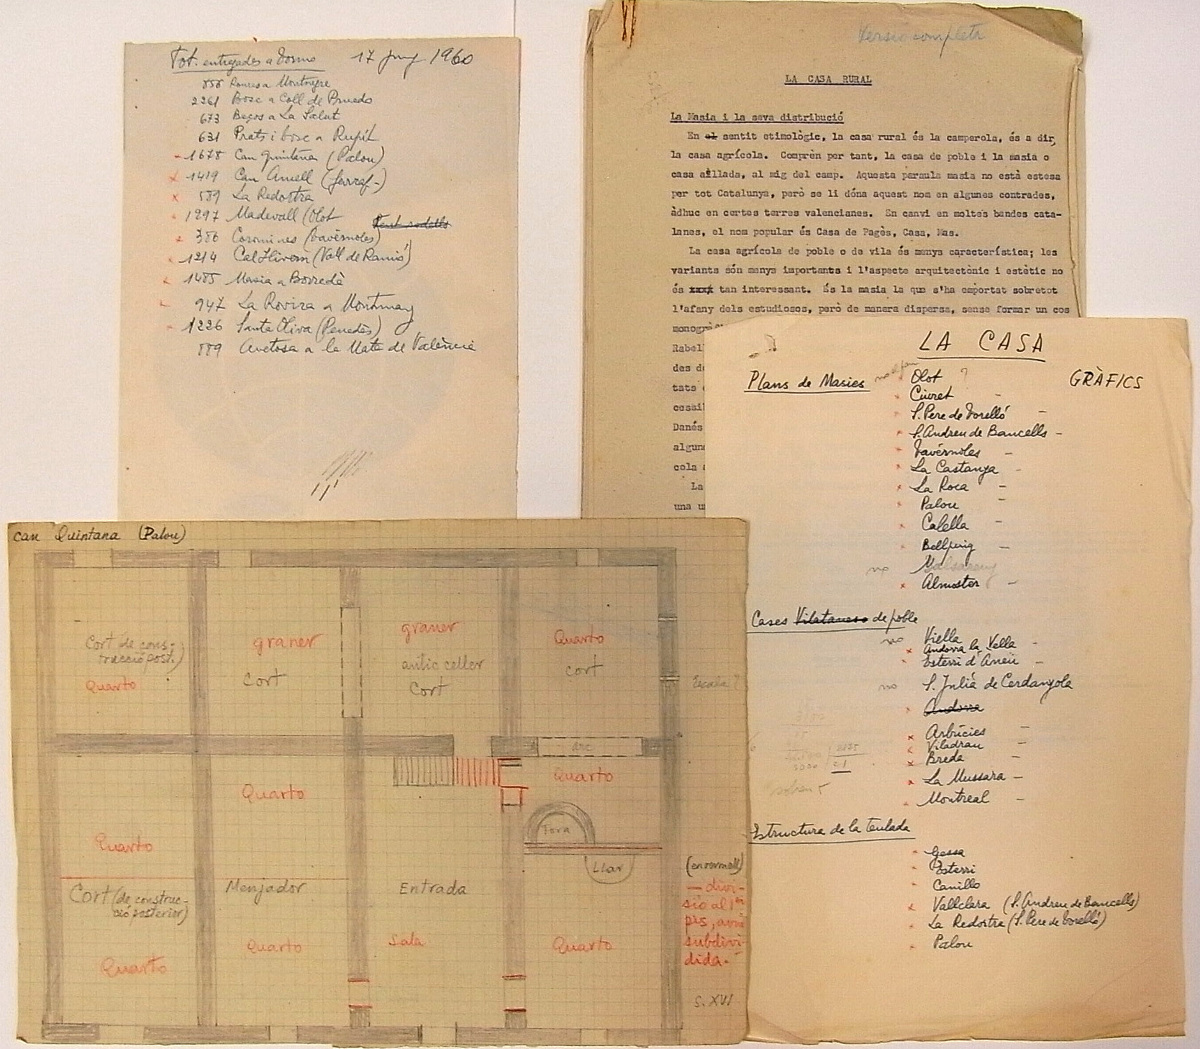 Fot. entregades a 17 juny 1960
856 a Montnegre
2261 Bosc a Coll de
673 Begos a La Salut
631 Prats i bosc a Rupit
1678 Can Quintana (Palou)
1419 Can Amell
589 La Redostra
1297 Madevall (Olot
386 Coromines (Tavèrnoles)
1214 Cal Hivern (Vall de
1485 Masia a Borredà
947 La Rovira a Montmany
1226 Santa Oliva (Penedès)
889 a la Mata de València
Versió completa
LA CASA RURAL
La Masia i la seva distribució
En el sentit etimològic, la casa rural és la camperola, és a dir,
la casa agrícola. Comprèn per tant, la casa de poble i la masia o
casa aïllada, al mig del camp. Aquesta paraula masia no està estesa
per tot Catalunya, però se li dóna aquest nom en algunes contrades,
àdhuc en certes terres valencianes. En canvi en moltes bandes cata-
lanes, el nom popular és Casa de Pagès, Casa, Mas.
La casa agrícola de poble o de vila és menys característica; les
variants són menys importants i l'aspecte arquitectònic i estètic no
és xxxx tan interessant. És la masia la que s'ha emportat sobretot
l'afany dels estudiosos, però de manera dispersa, sense formar un cos
monogrà
Rabell
des d
tats
cesai
Danés
algun
cola
La
una u
LA CASA
Plans de Masies
GRÀFICS
Olot ?
Ciuret -
S. Pere de Torelló -
S. Andreu de Bancells -
Tavèrnoles -
La Castanya -
La Roca -
Palou -
Calella -
Bellpuig -
no
Almoster -
Cases Vilatanes de poble
no Viella -
Andorra la Vella -
Esterri d'Àneu -
no S. Julià de Cerdanyola
Andorra
Arbúcies -
Viladrau -
Breda -
La Mussara -
Montreal -
Estructura de la teulada
Gessa
Esterri
Canillo
Vallclara (S. Andreu de Bancells)
La Redostra (S. Pere de Torelló)
Palou
can Quintana (Palou)
Cort (de cons-
trucció post.)
Quarto
graner
Cort
graner
antic celler
Cort
Quarto
cort
Escala ?
arc
Quarto
Quarto
Quarto
Forn
Llar
Cort (de construc-
ció posterior)
Menjador
Entrada
Quarto
Quarto
Sala
Quarto
(en vermell)
— divi-
sió al 1er
pis, avui
subdivi-
dida.
S. XVI